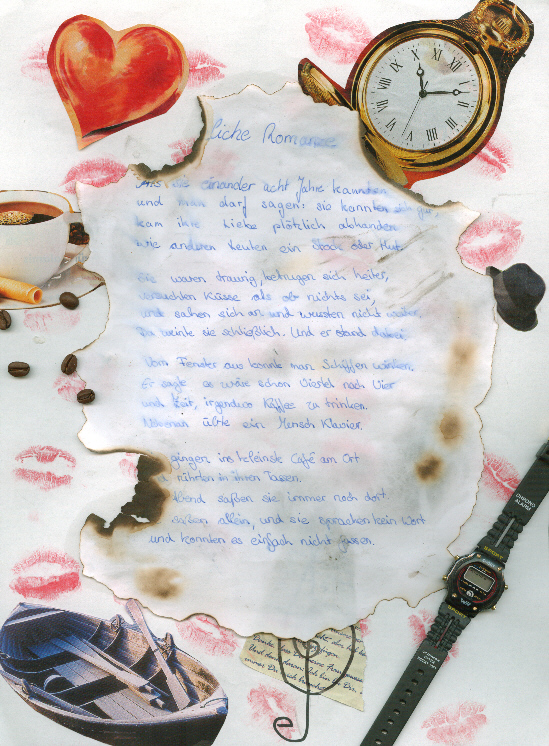 liche Romanze
Als sie einander acht Jahre kannten
und man darf sagen: sie kannten sich gut,
kam ihre Liebe plötzlich abhanden
wie anderen Leuten ein Stock oder Hut.
Sie waren traurig, betrugen sich heiter,
versuchten Küsse als ob nichts sei,
und sahen sich an und wussten nicht weiter.
Da weinte sie schließlich. Und er stand dabei.
Vom Fenster aus konnte man Schiffen winken.
Er sagte es wäre schon Viertel nach Vier
und Zeit, irgendwo Kaffee zu trinken.
Nebenan übte ein Mensch Klavier.
gingen ins kleinste Café am Ort
rührten in ihren Tassen.
bend saßen sie immer noch dort
saßen allein, und sie sprachen kein Wort
und konnten es einfach nicht fassen.
CHRONO
ALARM
SPORT
SPORT